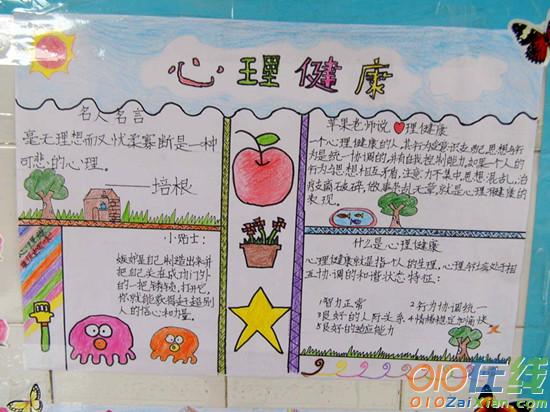 心理健康
名人名言
毫无理想而又优柔寡断是一种
可悲的心理。
——培根
小贴士:
嫉妒是自己制造出来并
把自己关在成功门外
的一把锈锁,打开它,
你就能获得赶超别
人的信心和力量。
苹果老师说 理健康
一个心理健康的人,其行为受意识支配,思想与行
为是统一协调的,并有自我控制能力,如果一个人的
行为与思想相互矛盾,注意力不集中,思想混乱,语
言支离破碎,做事杂乱无章,就是心理不健康的
表现。
什么是心理健康
心理健康就是指个人的生理、心理与社会处于相
互协调的和谐状态特征:
1智力正常 2行为协调统一
3良好的人际关系 4情绪稳定与愉快
5良好的适应能力
010在线
010ZaiXian.com